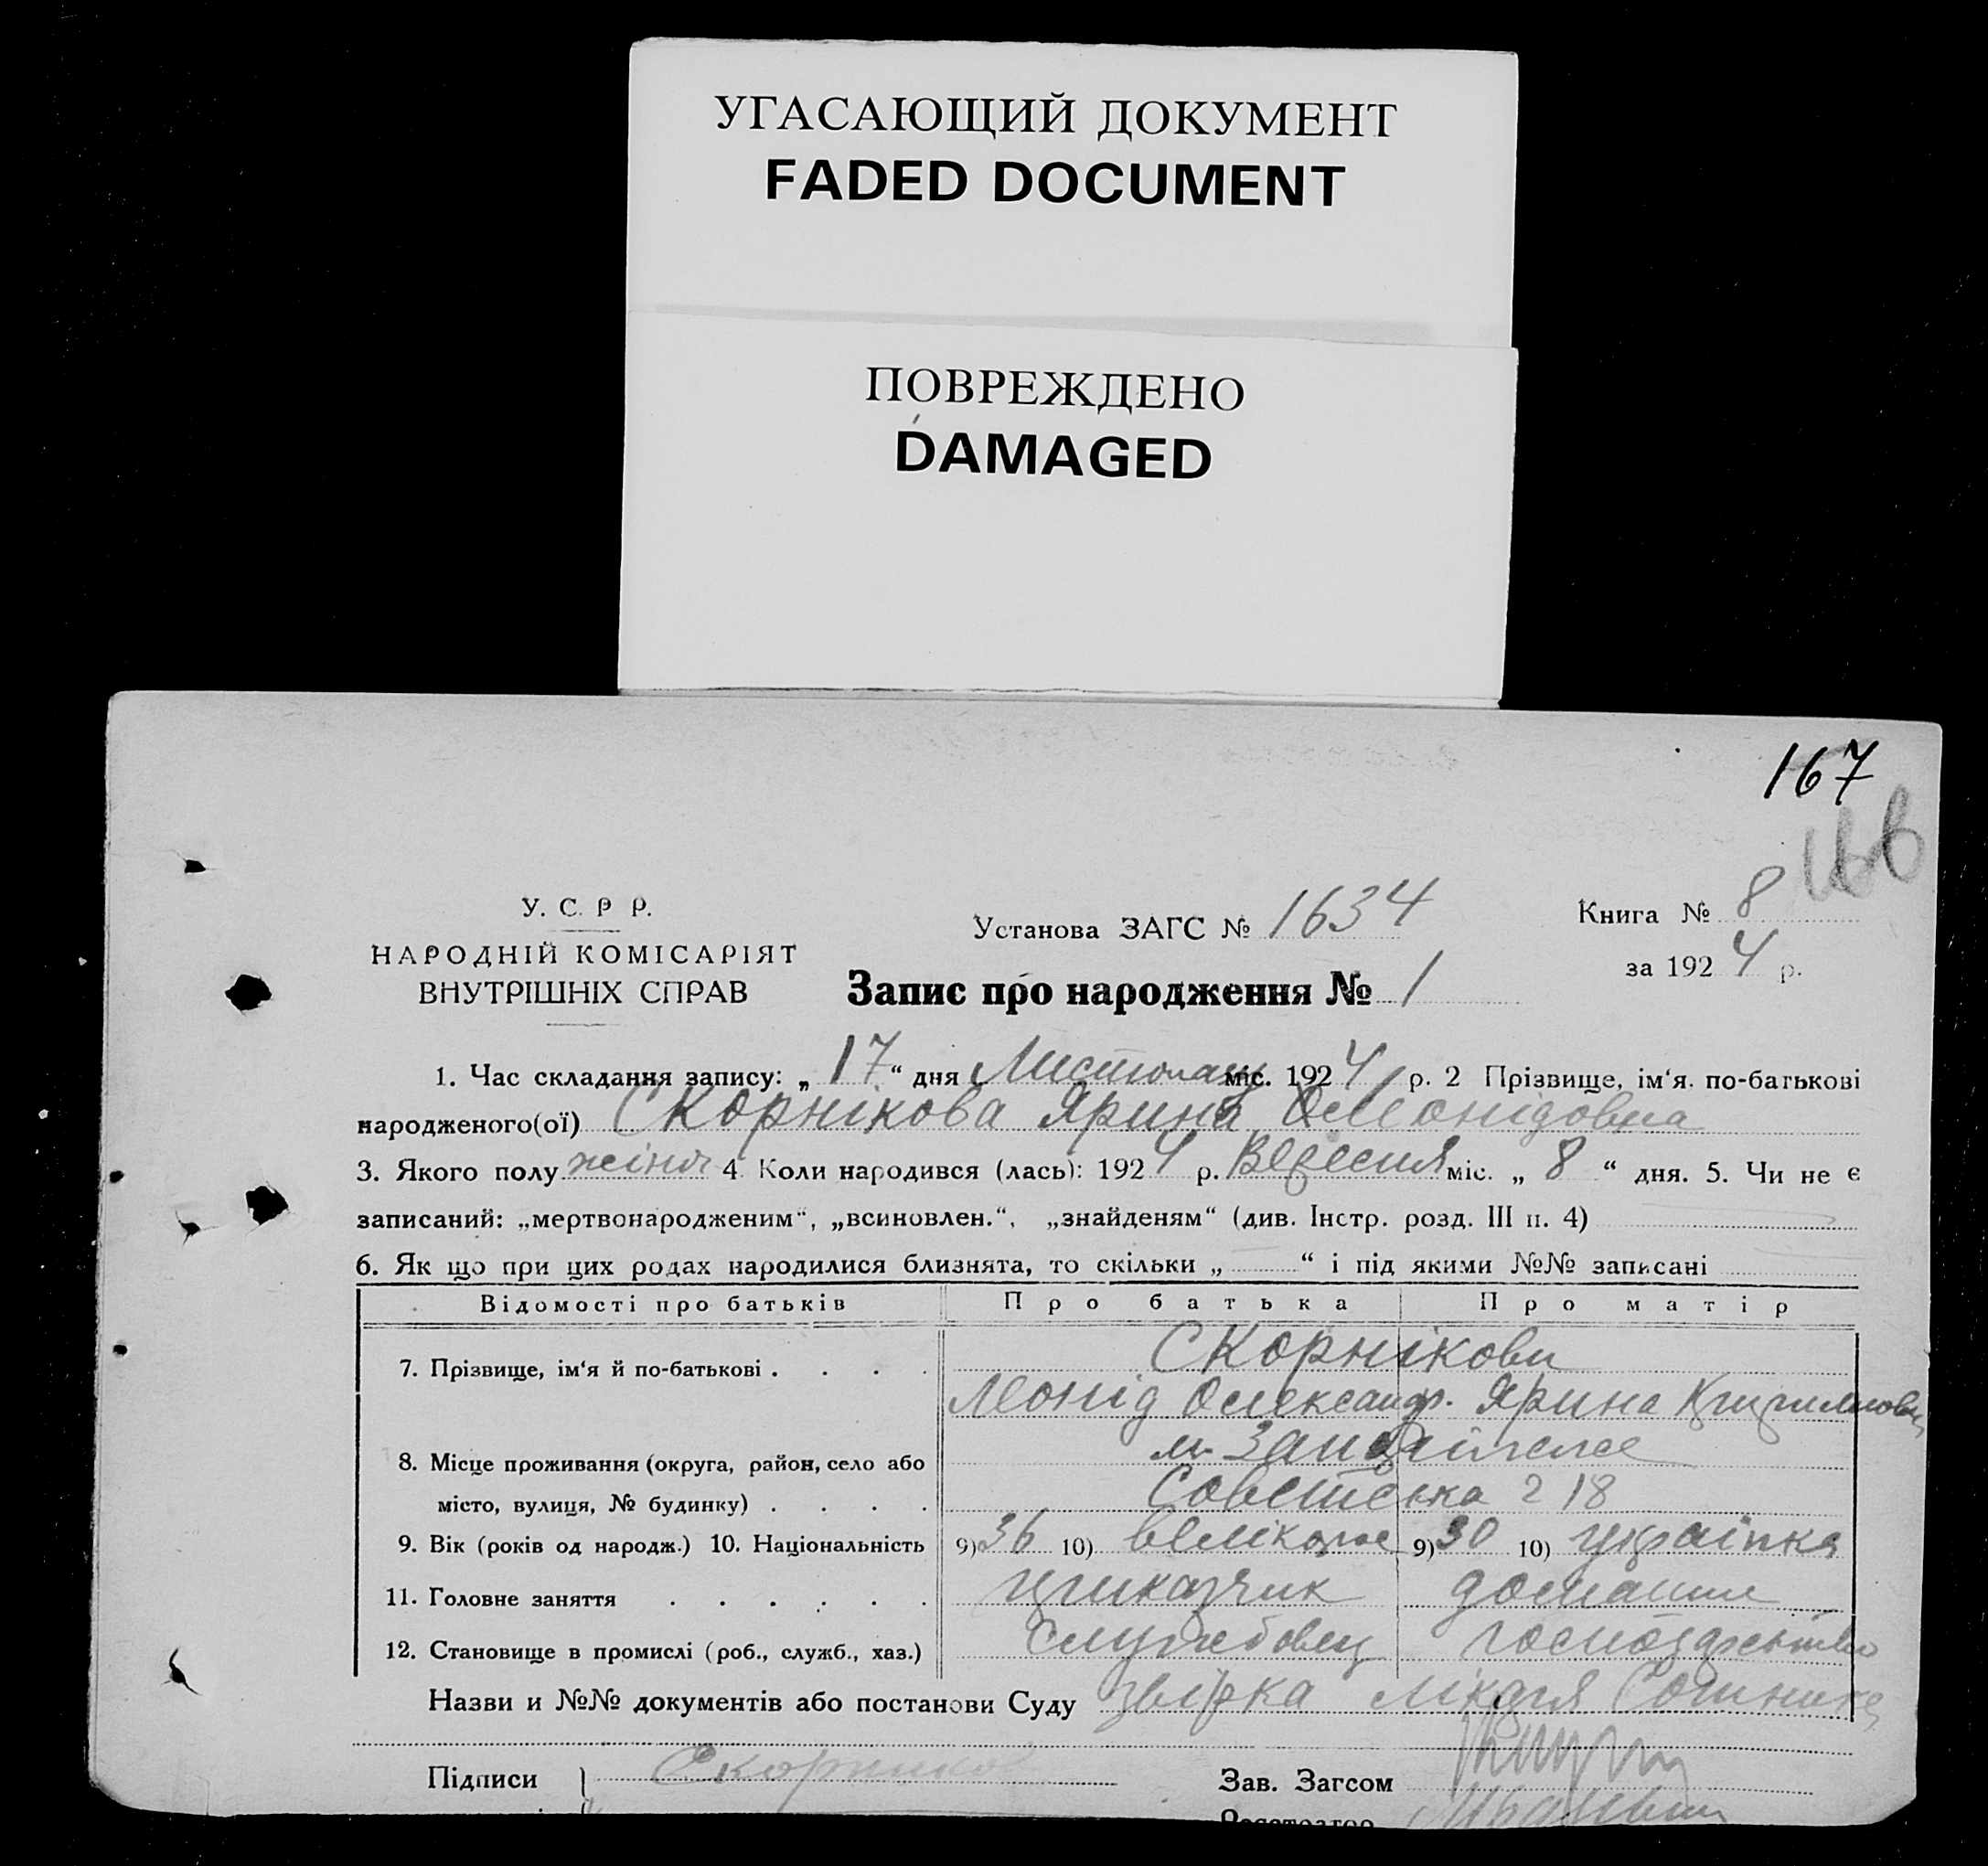 УГАСАЮЩИЙ ДОКУМЕНТ
FADED DOCUMENT
ПОВРЕЖДЕНО
DAMAGED
167
166
У. С. Р Р.
НАРОДНІЙ КОМІСАРІЯТ
ВНУТРІШНІХ СПРАВ
Установа ЗАГС № 1634
Книга № 8
за 1924 р.
Запис про народження № 1
1. Час складання запису: „ 17 “ дня Листопад міс. 1924 р. 2 Прізвище, ім'я. по-батькові
народженого(ої) Скорнікова Ярина Леонідовна
3. Якого полу жіноч 4 Коли народився (лась): 1924 р. Вересня міс. „ 8 “ дня. 5. Чи не є
записаний: „мертвонародженим“, „всиновлен.“, „знайденям“ (див. Інстр. розд. III п. 4)
6. Як що при цих родах народилися близнята, то скільки „ “ і під якими №№ записані
Відомості про батьків Про батька Про матір
7. Прізвище, ім'я й по-батькові . . . . Скорнікови
Леонід Олександр. Ярина
8. Місце проживання (округа, район, село або м. Запоріжжє
місто, вулиця, № будинку) . . . . Советська 218
9. Вік (років од народж.) 10. Національність 9) 36 10) великорос 9) 30 10) українка
11. Головне заняття . . . . . . приказчик домашнє
12. Становище в промислі (роб., служб., хаз.) службовец господарство
Назви и №№ документів або постанови Суду лікаря
Підписи } Скорніков Зав. Загсом